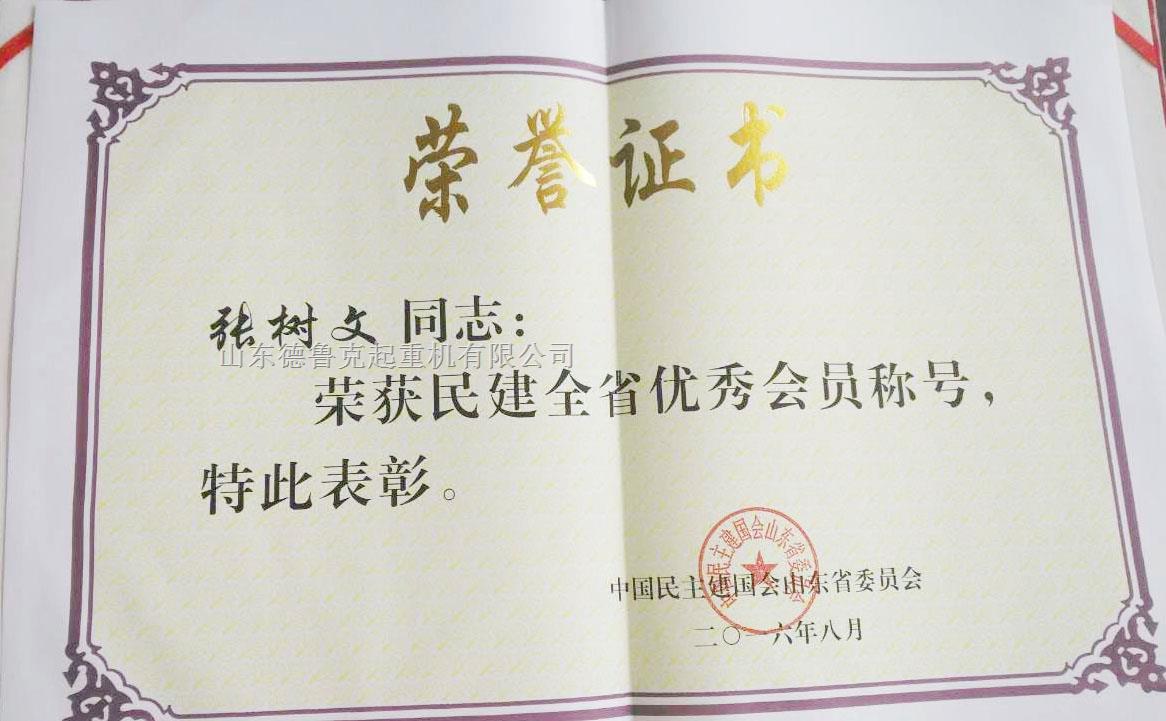 荣誉证书
张树文 同志：
山东德鲁克起重机有限公司
荣获民建全省优秀会员称号，
特此表彰。
中国民主建国会山东省委员会
中国民主建国会山东省委员会
二〇一六年八月